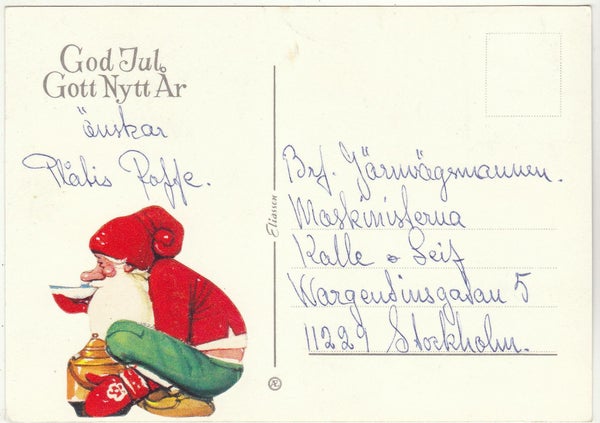 God Jul
Gott Nytt År
önskar
Plåtis Roffe.
Eliassen
Brf. Järnvägsmannen.
Maskinisterna
Kalle o Leif
Wargentinsgatan 5
11229 Stockholm.
Æ